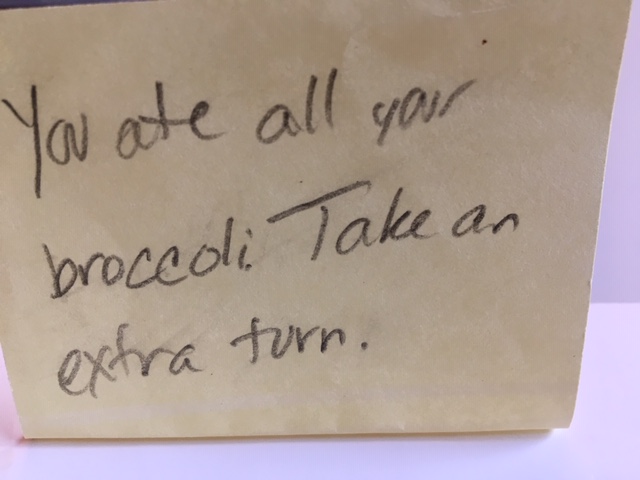 You ate all your
broccoli. Take an
extra turn.